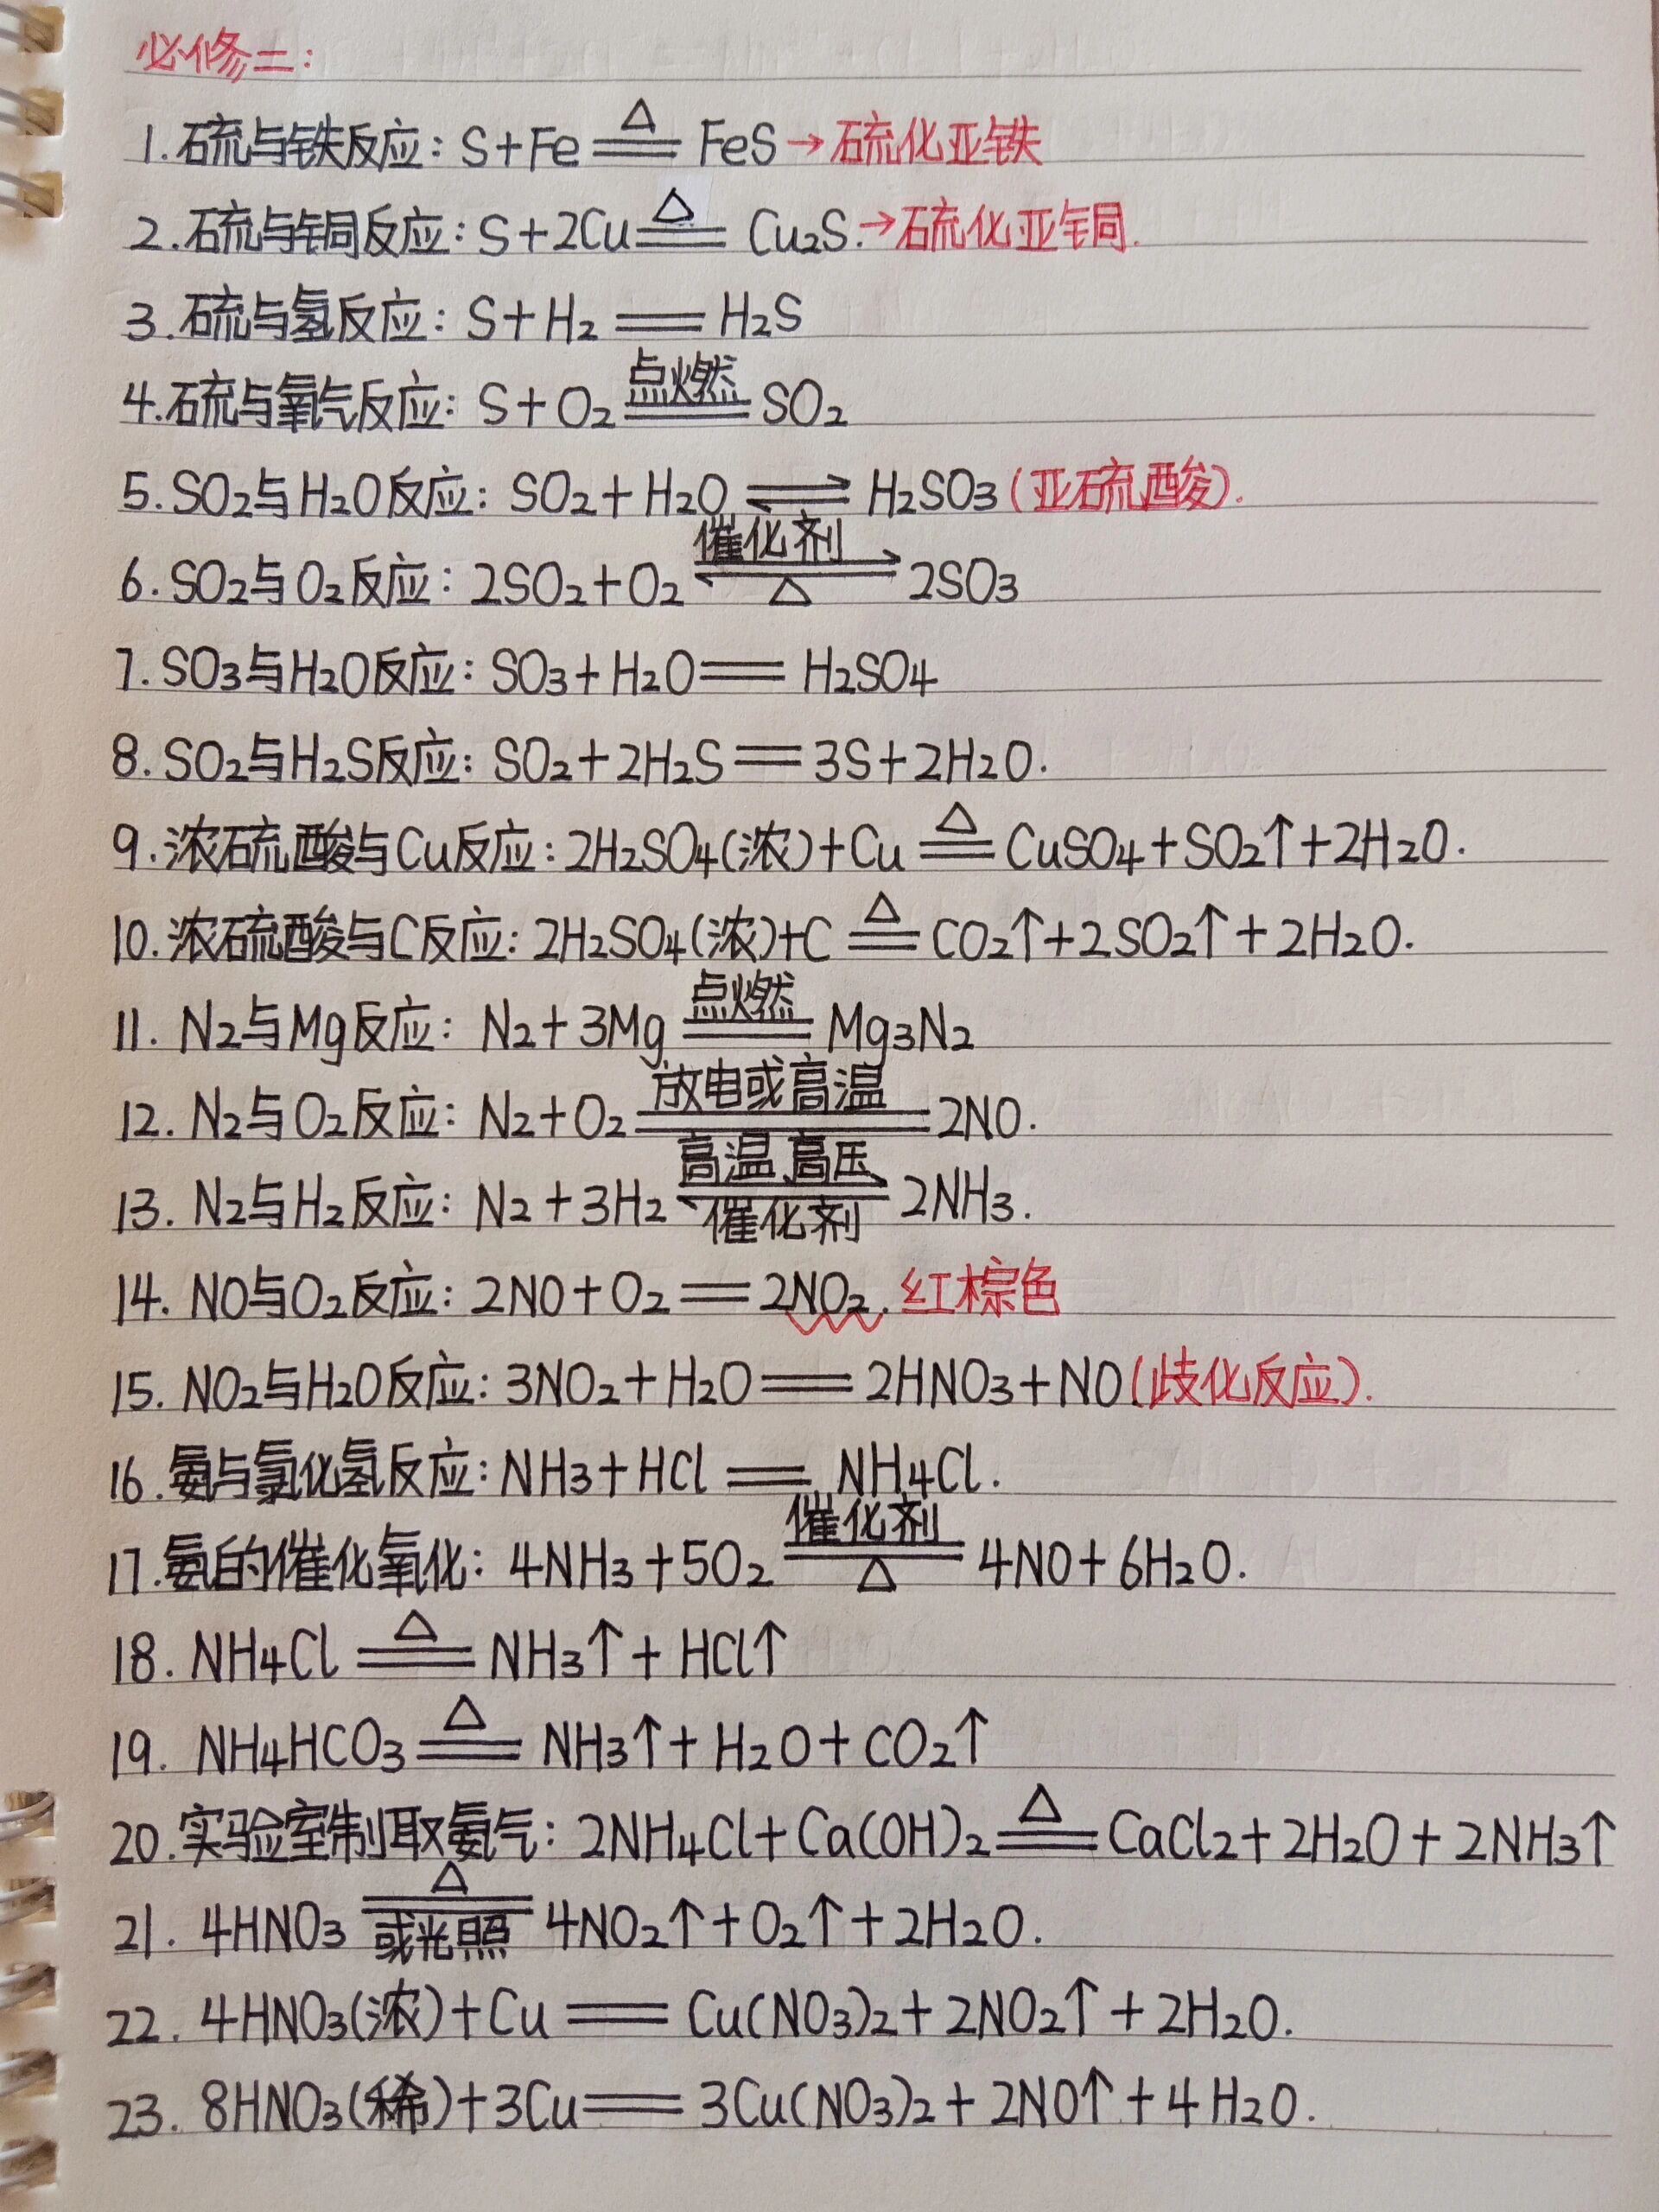 必修二:
1.硫与铁反应: S+Fe ≜ FeS→硫化亚铁
2.硫与铜反应: S+2Cu ≜ Cu₂S.→硫化亚铜.
3.硫与氢反应: S+H₂ == H₂S
4.硫与氧气反应: S+O₂ =点燃= SO₂
5.SO₂与H₂O反应: SO₂+H₂O ⇌ H₂SO₃(亚硫酸).
6.SO₂与O₂反应: 2SO₂+O₂ ⇌(催化剂/△) 2SO₃
7.SO₃与H₂O反应: SO₃+H₂O == H₂SO₄
8.SO₂与H₂S反应: SO₂+2H₂S == 3S+2H₂O.
9.浓硫酸与Cu反应: 2H₂SO₄(浓)+Cu ≜ CuSO₄+SO₂↑+2H₂O.
10.浓硫酸与C反应: 2H₂SO₄(浓)+C ≜ CO₂↑+2SO₂↑+2H₂O.
11. N₂与Mg反应: N₂+3Mg =点燃= Mg₃N₂
12. N₂与O₂反应: N₂+O₂ =放电或高温= 2NO.
13. N₂与H₂反应: N₂+3H₂ ⇌(高温、高压/催化剂) 2NH₃.
14. NO与O₂反应: 2NO+O₂ == 2NO₂. 红棕色
15. NO₂与H₂O反应: 3NO₂+H₂O == 2HNO₃+NO(歧化反应).
16.氨与氯化氢反应: NH₃+HCl == NH₄Cl.
17.氨的催化氧化: 4NH₃+5O₂ =(催化剂/△)= 4NO+6H₂O.
18. NH₄Cl ≜ NH₃↑+HCl↑
19. NH₄HCO₃ ≜ NH₃↑+H₂O+CO₂↑
20.实验室制取氨气: 2NH₄Cl+Ca(OH)₂ ≜ CaCl₂+2H₂O+2NH₃↑
21. 4HNO₃ =(△/或光照)= 4NO₂↑+O₂↑+2H₂O.
22. 4HNO₃(浓)+Cu == Cu(NO₃)₂+2NO₂↑+2H₂O.
23. 8HNO₃(稀)+3Cu == 3Cu(NO₃)₂+2NO↑+4H₂O.